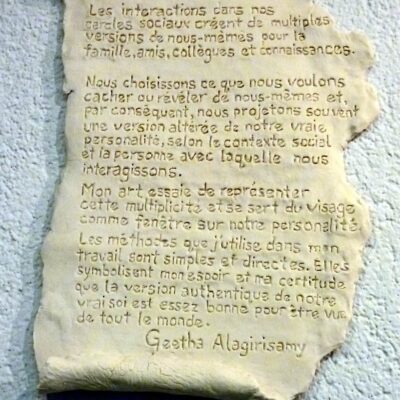 Les interactions dans nos
cercles sociaux créent de multiples
versions de nous-mêmes pour la
famille, amis, collègues et connaissances.
Nous choisissons ce que nous voulons
cacher ou révéler de nous-mêmes et,
par conséquent, nous projetons souvent
une version altérée de notre vraie
personalité, selon le contexte social
et la personne avec laquelle nous
interagissons.
Mon art essaie de représenter
cette multiplicité et se sert du visage
comme fenêtre sur notre personalité.
Les méthodes que j'utilise dans mon
travail sont simples et directes. Elles
symbolisent mon espoir et ma certitude
que la version authentique de notre
vrai soi est essez bonne pour être vue
de tout le monde.
Geetha Alagirisamy